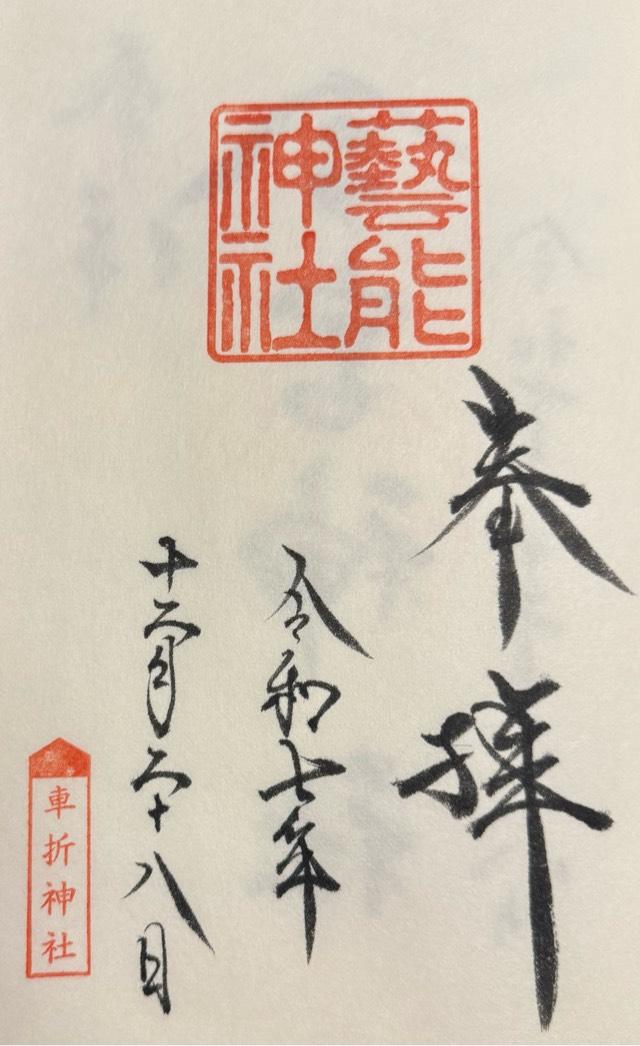 藝能
神社
奉拝
令和七年
十二月二十八日
車折神社